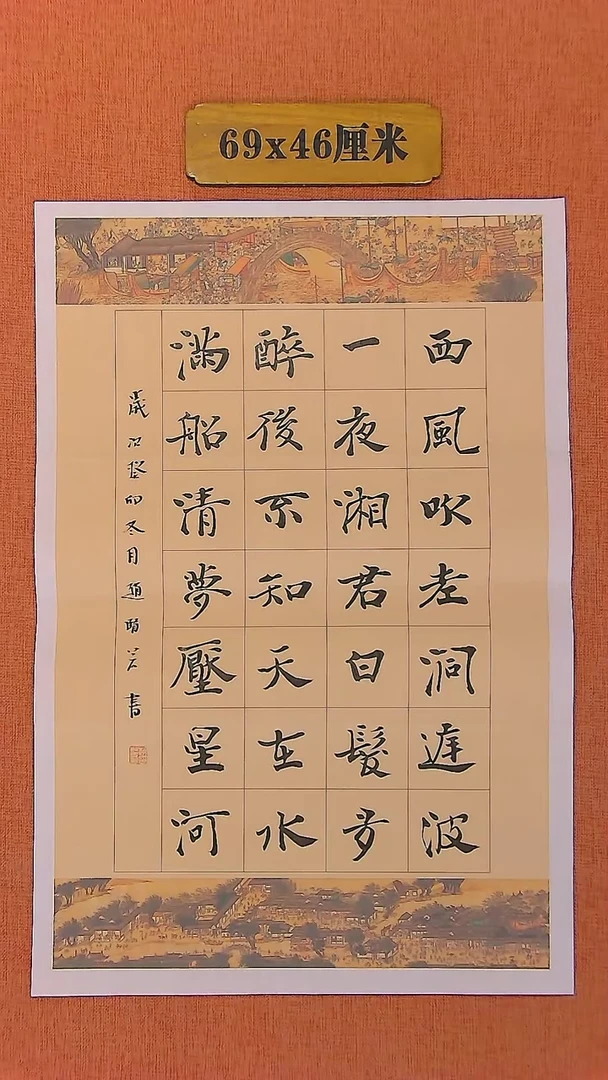 69x46厘米
西風吹老洞庭波
一夜湘君白髮多
醉後不知天在水
滿船清夢壓星河
歲次癸卯冬月趙書